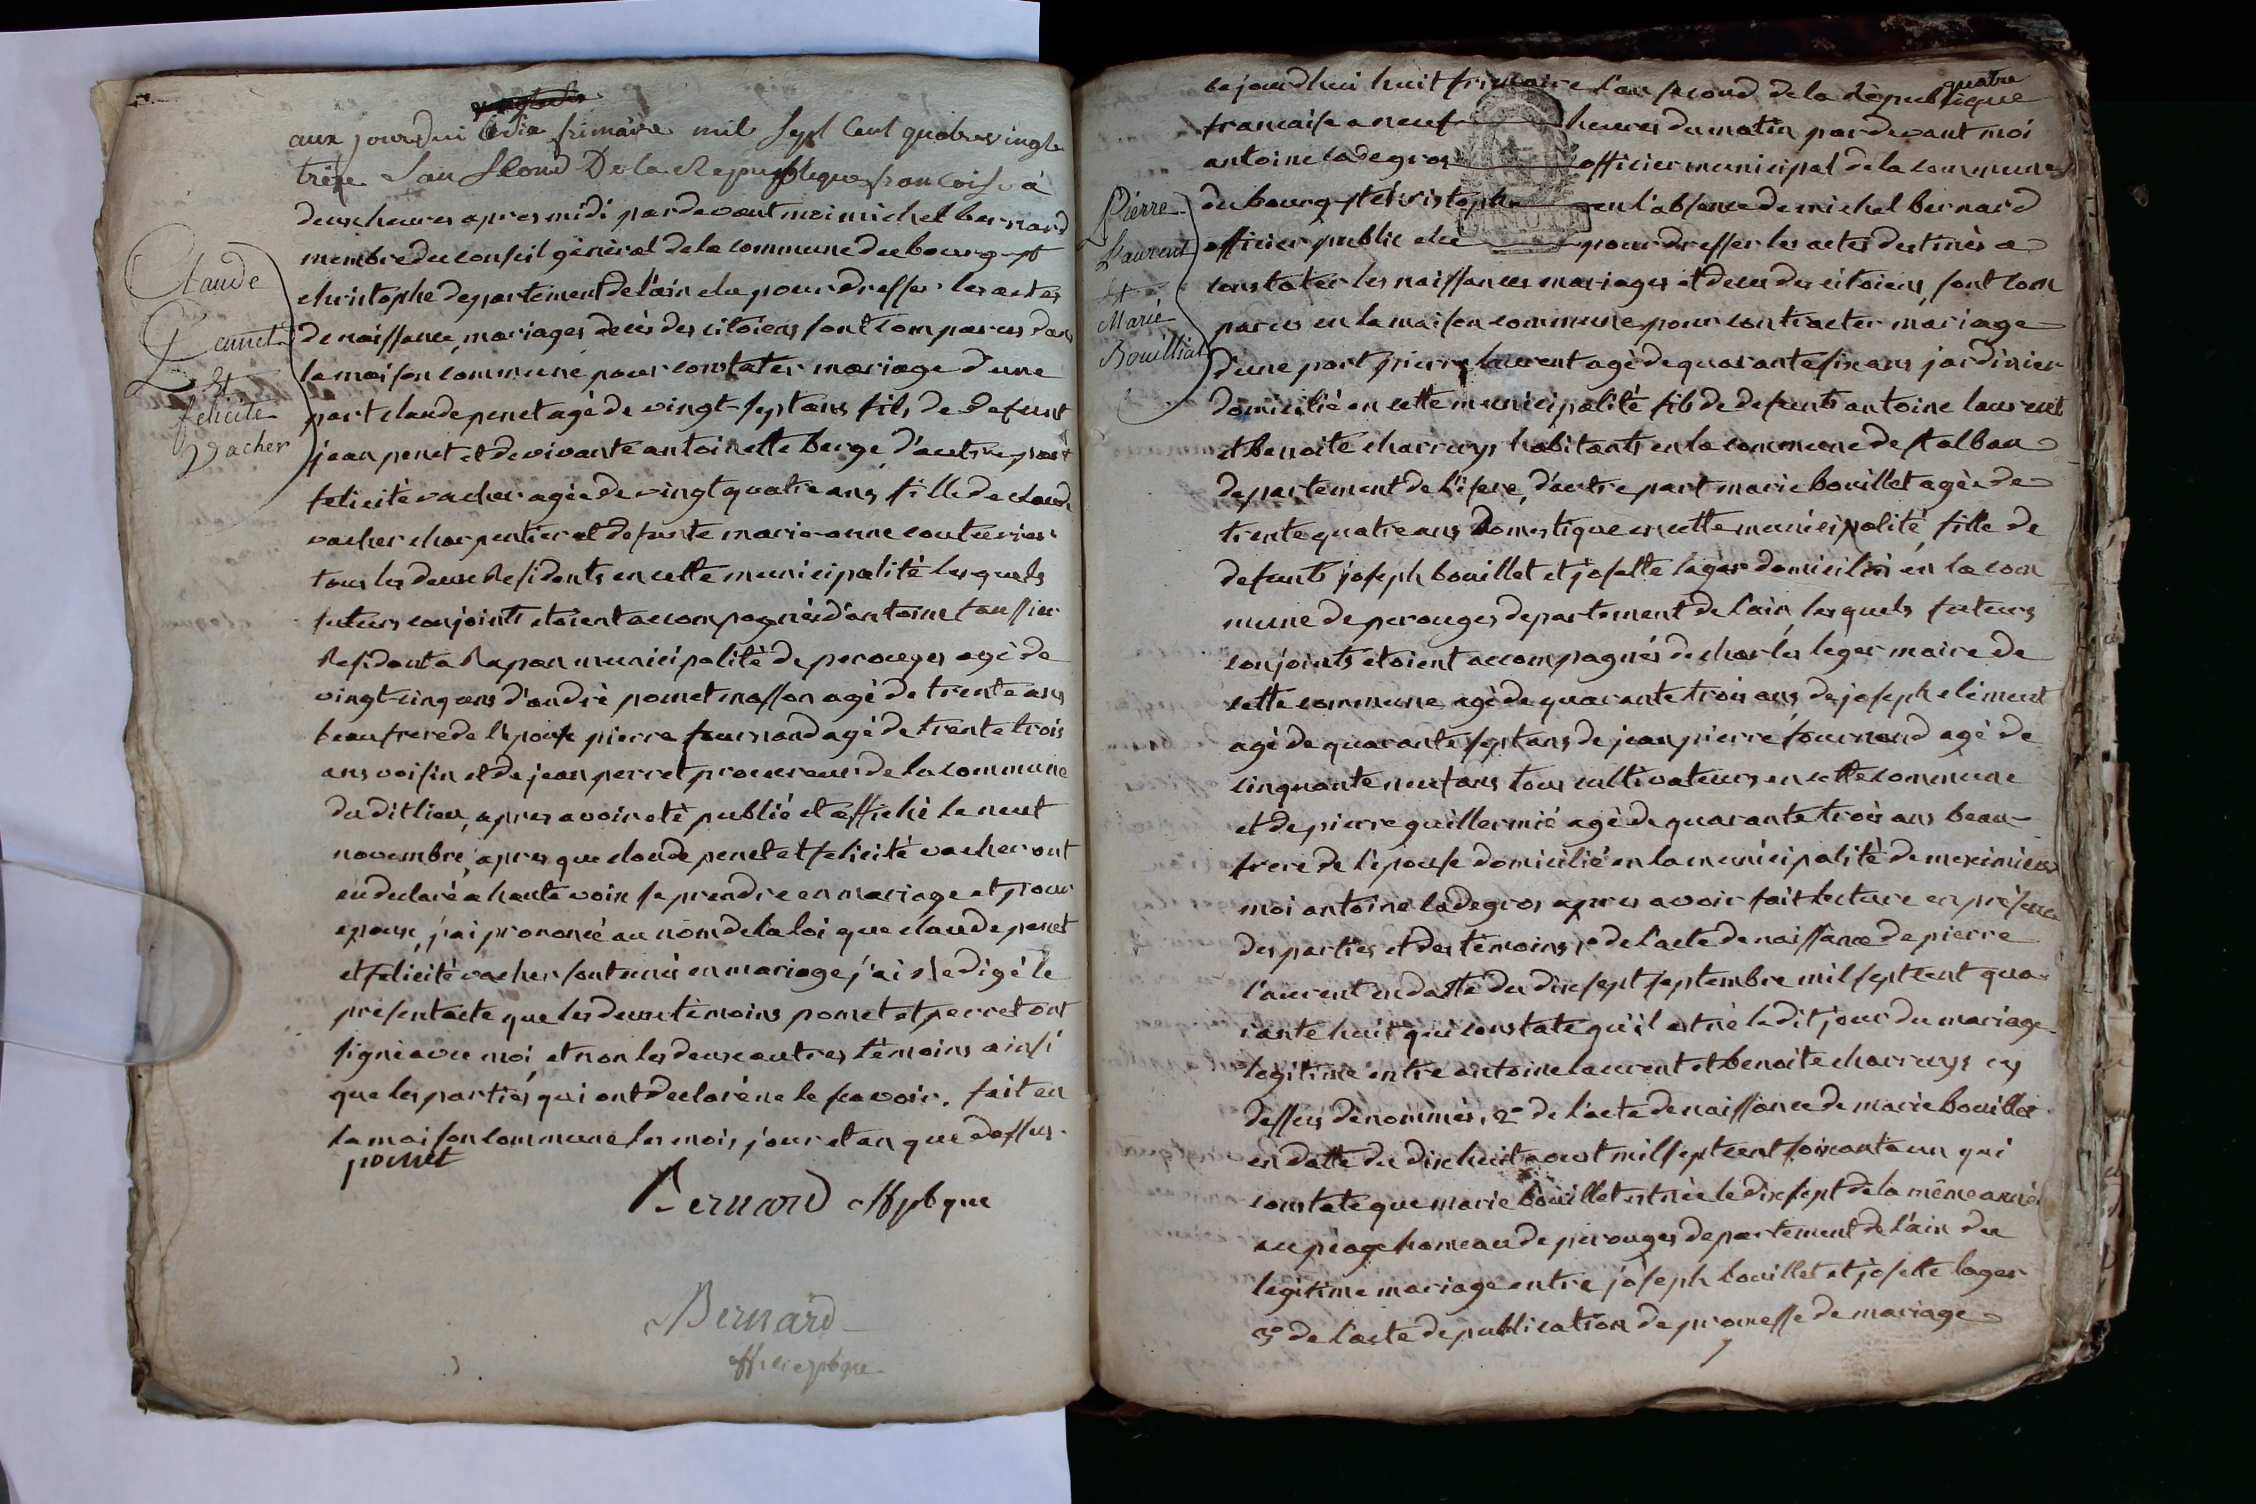 aux jourdui frimaire mil sept Cent quatre vingt
treze Lan Second De la Republique francoise à
deux heures apres midi pardevant moi michel bernard
membre du conseil géneral de la commune du bourg st
christophe departement de l'ain elu pour dresser les actes
de naissance, mariages decès des citoiens sont comparus dans
la maison commune pour constater mariage d'une
part claude penet agé de vingt-sept ans fils de defunt
jean penet et de vivante antoinette berge, d'autre part
felicité vacher agée de vingt quatre ans, fille de claude
vacher charpentier et defunte marie-anne couturier
tous les deux Residents en cette municipalité lesquels
futurs conjoints etoient accompagnés d'antoine
Residant a Rapan municipalité de perouges agé de
vingt-cinq ans d'andré pomet masson agé de trente ans
beaufrere de l'epouse pierre fournand agé de trente trois
ans voisin et de jean perret procureur de la commune
dudit lieu, apres avoir eté publié et affiché le neuf
novembre, apres que claude penet et felicité vacher ont
eu declaré a haute voix se prendre en mariage et pour
epoux, j'ai prononcé au nom de la loi que claude penet
et felicité vacher sont unis en mariage, j'ai Redigé le
present acte que les deux témoins pomet et perret ont
signé avec moi, et non les deux autres témoins ainsi
que les parties qui ont declaré ne le scavoir. fait en
la maison commune les mois, jour et an que dessus.
pomet
Bernard off pbque
Bernard
offici pbque
Claude
Pennet
et
félicité
Vacher
quatre
cejourdhui huit frimaire l'an second de la République
francaise a neuf heures du matin pardevant moi
antoine ladegros officier municipal de la commune
du bourg-st christophe en l'absence de michel bernard
officier public elu pour dresser les actes destinés a
constater les naissances mariages et deces des citoiens, sont com
parus en la maison commune pour contracter mariage
d'une part pierre laurent agé de quarante six ans jardinier
domicilié en cette municipalité fils de defunts antoine laurent
et benoite charruys habitants en la commune de st alban
departement de l'isere, d'autre part marie bouillet agée de
trente quatre ans Domestique en cette municipalité, fille de
defunts joseph bouillet et josette lager domiciliés en la com
mune de perouges departement de l'ain, lesquels futurs
conjoints etoient accompagnés de charles leger maire de
cette commune agé de quarante trois ans de joseph clément
agé de quarante sept ans de jean pierre fournand agé de
cinquante neuf ans tous cultivateurs en cette commune
et de pierre guillermié agé de quarante trois ans beau-
frere de l'épouse domicilié en la municipalité de meximieux
moi antoine ladegros apres avoir fait lecture en présence
des parties et des témoins, 1° de l'acte de naissance de pierre
laurent en datte du dix sept septembre mil sept cent qua
rante huit qui constate qu'il est né ledit jour du mariage
legitime entre antoine laurent et benoite charruys cy
dessus dénommés, 2° de l'acte de naissance de marie bouillet
en datte du dix huit aoust mil sept cent soixante un qui
constate que marie bouillet est née le dix sept de la même année
au péage hameau de perouges departement de l'ain du
légitime mariage entre joseph bouillet et josette lager
3° de l'acte de publication de promesse de mariage
Pierre
Laurent
et
Marie
Bouilliat